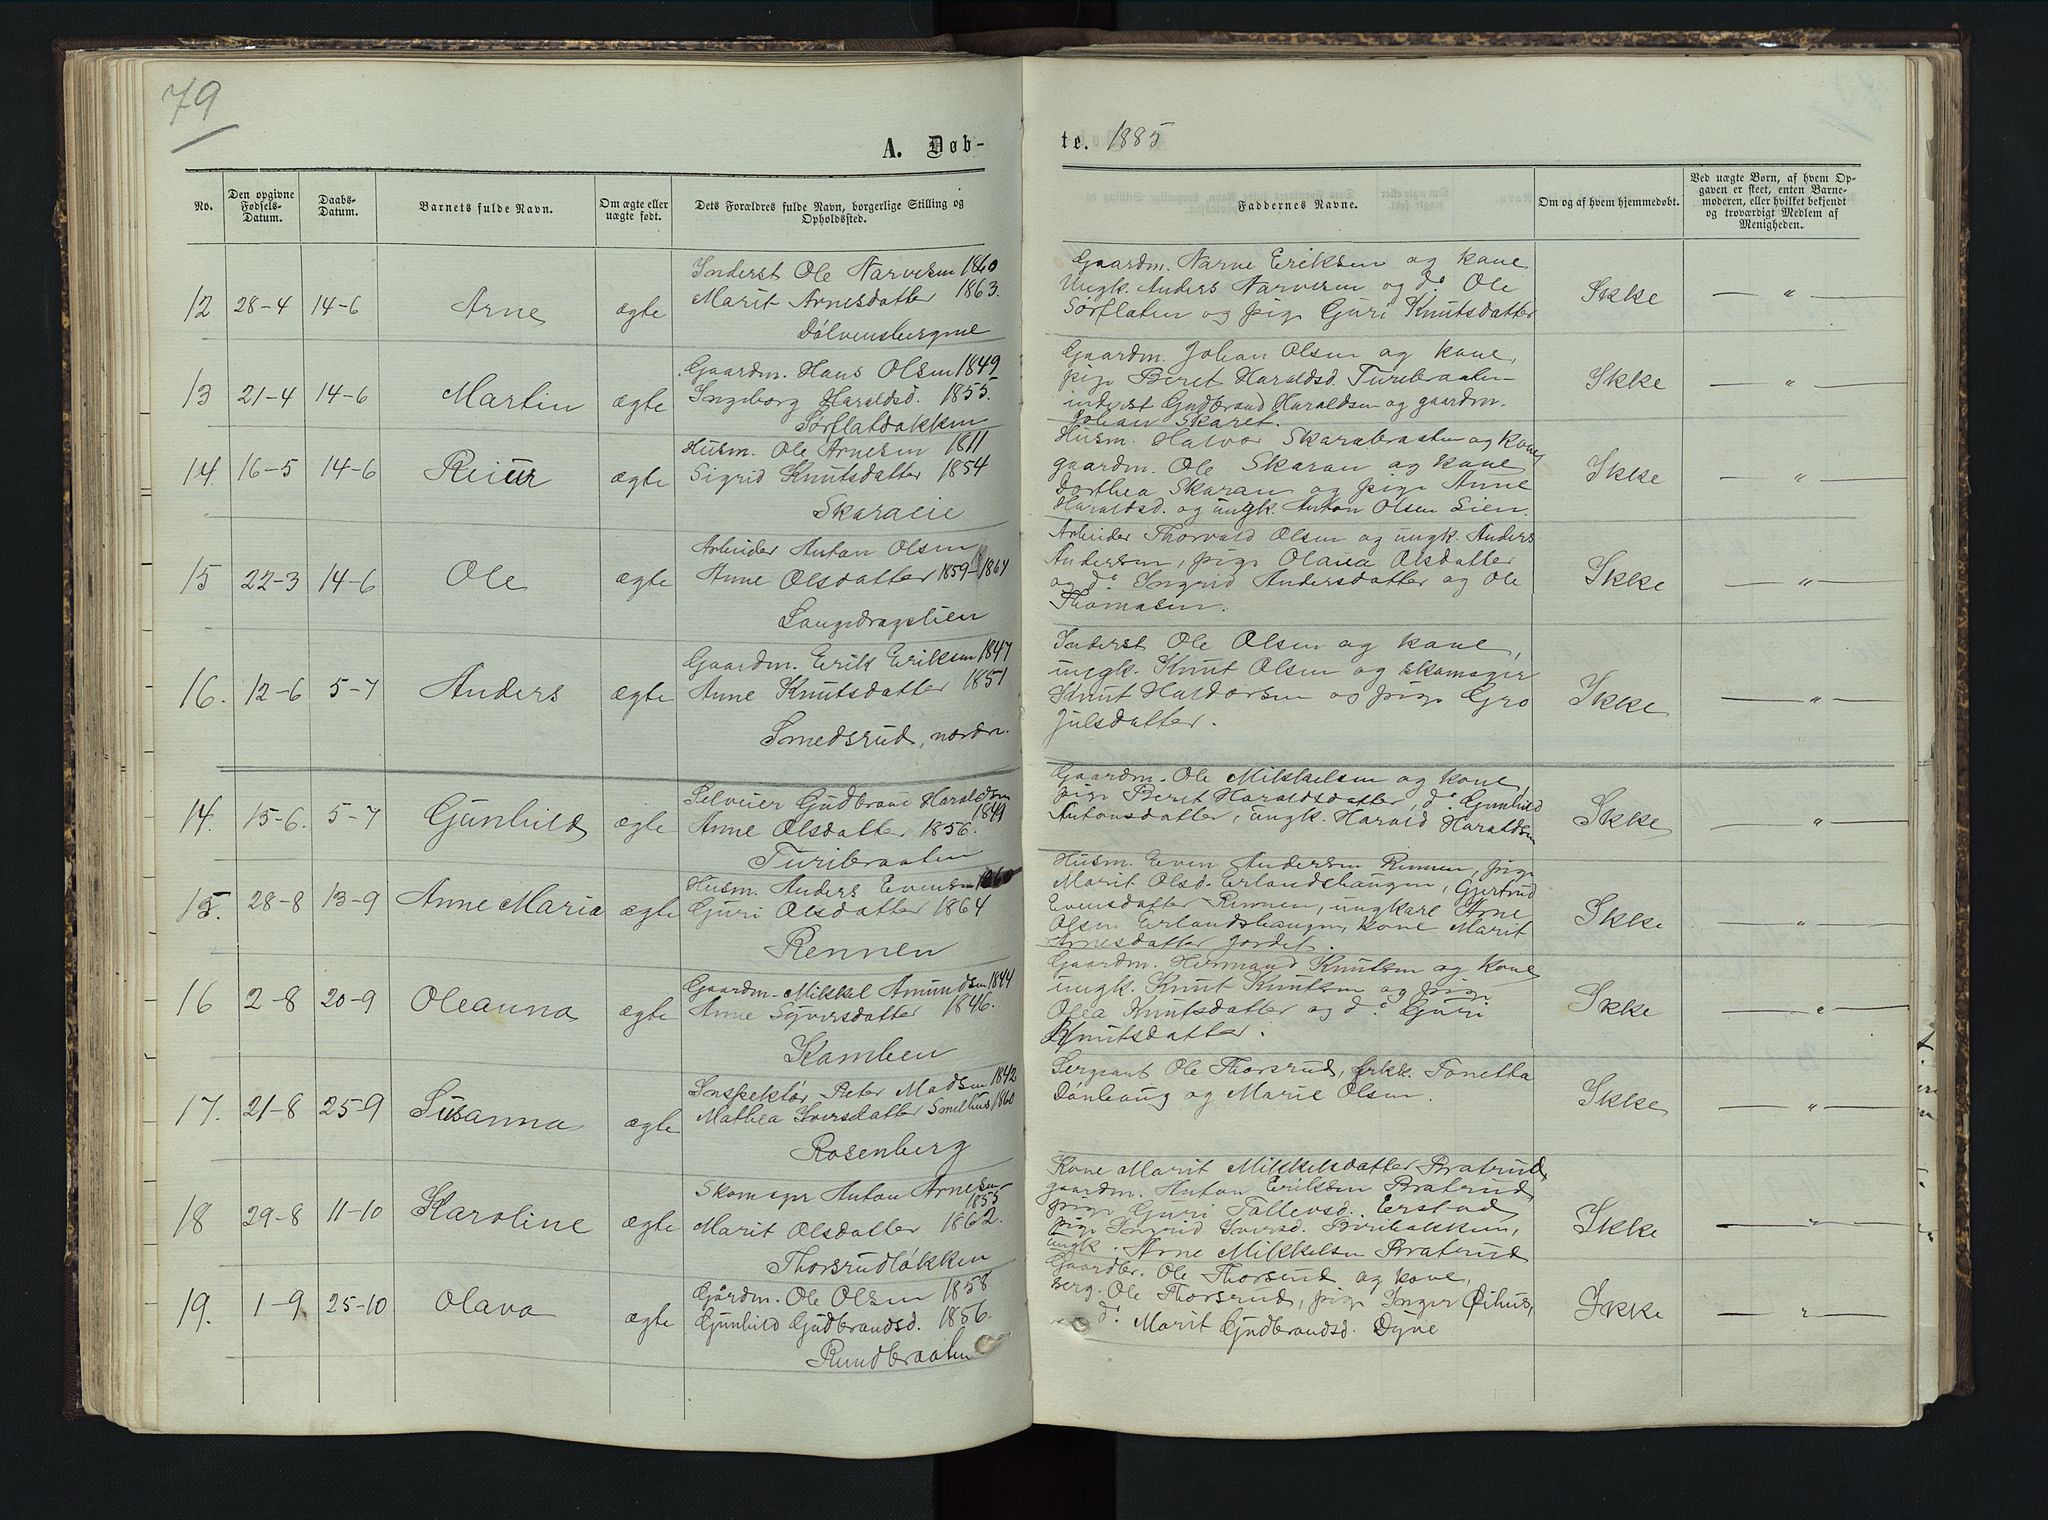 79
A. Døb-
te. 1885
No.
Den opgivne Fødsels-Datum.
Daabs-Datum.
Barnets fulde Navn.
Om ægte eller uægte født.
Dets Forældres fulde Navn, borgerlige Stilling og Opholdssted.
Faddernes Navne.
Om og af hvem hjemmedøbt.
Ved uægte Børn, af hvem Opgaven er skeet, enten Barnemoderen, eller hvilket bekjendt og troværdigt Medlem af Menigheden.
12. 28-4 14-6 Arne ægte
Inderst Ole Narvesen 1860
Marit Arnesdatter 1863.
Dölvensbergene
Gaardm. Narve Eriksen og kone
Ungk. Anders Narvesen og do Ole
Sørflaten og pige Guri Knutsdatter
Ikke — " —
13 21-4 14-6 Martin ægte
Gaardm. Hans Olsen 1849
Ingeborg Haraldsd. 1855.
Sørflatbakken
Gaardm. Johan Olsen og kone,
pige Beret Haraldsd. Turibraaten
inderst Gudbrand Haraldsen og gaardm.
Johan Skaret.
Ikke — " —
14. 16-5 14-6 Reier ægte
Husm. Ole Arnesen 1811
Sigrid Knutsdatter 1854
Skaraeie
Husm. Halvor Skarabraaten og kone
gaardm. Ole Skaran og kone
Dorthea Skaran og pige Anne
Haraldsd. og ungk. Anton Olsen Lien.
Ikke — " —
15 22-3 14-6 Ole ægte
Arbeider Anton Olsen
Anne Olsdatter 1859-1864
Langedragslien
Arbeider Thorvald Olsen og ungk. Anders
Andersen, pige Olava Olsdatter
og do Ingrid Andersdatter og Ole
Thomasen.
Ikke — " —
16. 12-6 5-7 Anders ægte
Gaardm. Erik Eriksen 1847
Anne Knutsdatter 1851
Smedsrud, nordre.
Inderst Ole Olsen og kone,
ungk. Knut Olsen og skomager
Knut Haldorsen og pige Gro
Julsdatter.
Ikke — " —
14. 15-6. 5-7 Gunhild ægte
Selveier Gudbrand Haraldsen
1849
Anne Olsdatter 1856.
Turibraaten
Gaardm. Ole Mikkelsen og kone
pige Beret Haraldsdatter, do Gunhild
Antonsdatter, ungk. Harald Haraldsen
Ikke — " —
15. 28-8 13-9 Anne Maria ægte
Husm. Anders Evensen 1860
Guri Olsdatter 1864
Rennen
Husm. Even Andersen Rennen, pige
Marit Olsd. Erlandshaugen, Gjertrud
Evensdatter Rennen, ungkarl Arne
Olsen Erlandshaugen, kone Marit
Arnesdatter Jordet.
Ikke — " —
16 2-8 20-9 Oleanna ægte
Gaardm. Mikkel Amundsen 1844
Anne Syversdatter 1846.
Kamben
Gaardm. Hermand Knutsen og kone
ungk. Knut Knutsen og pige
Olea Knutsdatter og do Guri
Knutsdatter.
Ikke — " —
17. 21-8 25-9 Susanna ægte
Inspektör Peter Madsen 1842
Mathea Iversdatter Smehus 1860
Rosenberg
Sergeant Ole Thorsrud, frkk. Tonetta
Dönhaug og Marie Olsen.
Ikke — " —
18 29-8 11-10 Karoline ægte
Skomager Anton Arnesen
1855
Marit Olsdatter 1862.
Thorsrudløkken
Kone Marit Mikkelsdatter Bratrud
gaardm. Anton Eriksen Bratrud
pige Guri Tollevsd. Erstad
pige Ingrid Iversd. Biribakken,
ungk. Arne Mikkelsen Bratrud
Ikke — " —
19. 1-9 25-10 Olava ægte
Gårdm. Ole Olsen 1858
Gunhild Gudbrandsd. 1856.
Rundbraaten
Gaardbr. Ole Thorsrud og kone,
Berg. Ole Thorsrud, pige Inger Öihus,
do Marit Gudbrandsd. Dyne
Ikke — " —